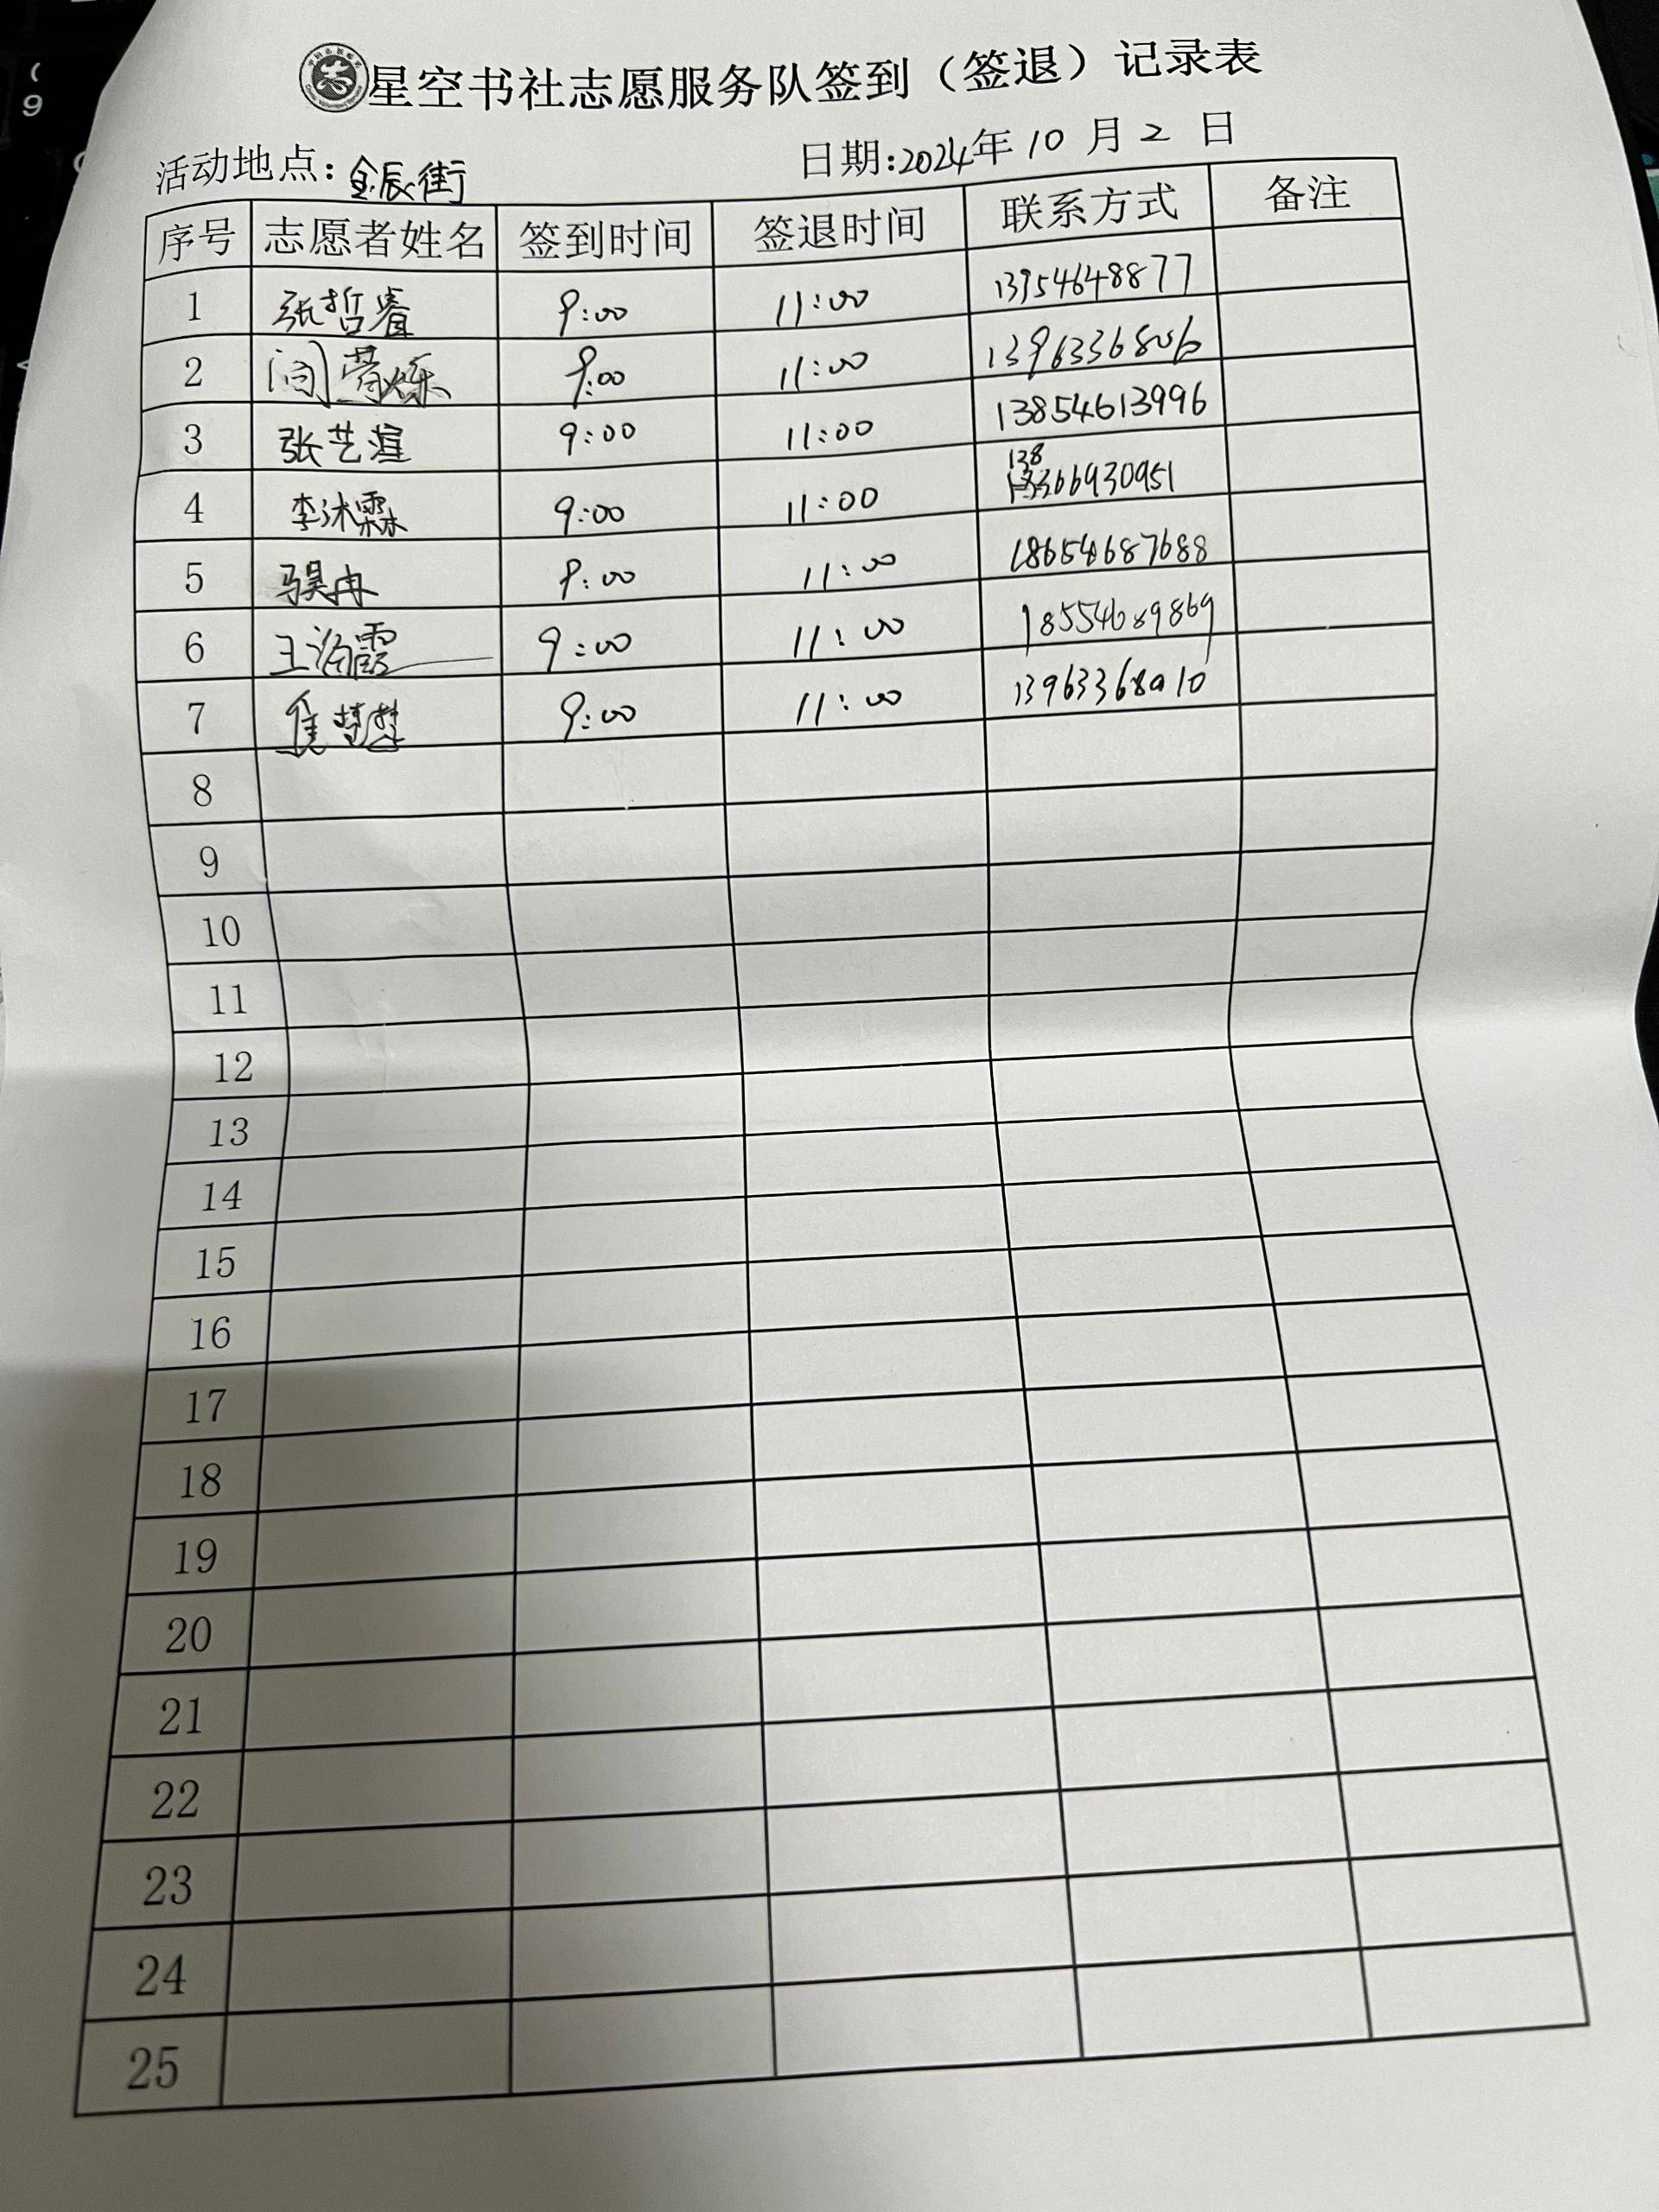 星空书社志愿服务队签到（签退）记录表
活动地点：金辰街 日期:2024年10月2日
序号 志愿者姓名 签到时间 签退时间 联系方式 备注
1 张哲睿 9:00 11:00 13954648877
2 闫 9:00 11:00 13963368006
3 张艺渲 9:00 11:00 13854613996
4 李沐霖 9:00 11:00
5 马昊冉 9:00 11:00 18654687688
6 王 霞 9:00 11:00 18554689869
7 焦楚楚 9:00 11:00
8
9
10
11
12
13
14
15
16
17
18
19
20
21
22
23
24
25